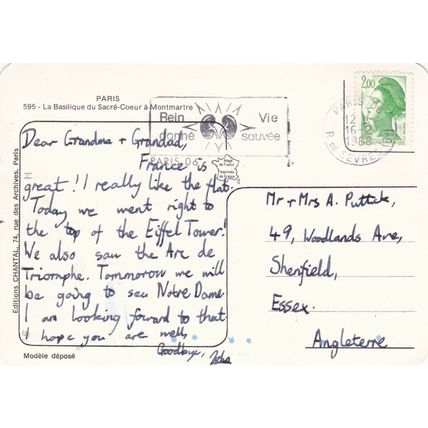 PARIS
595 - La Basilique du Sacré-Coeur à Montmartre
Rein Vie
donné sauvée
PARIS 06
2,00
PARIS
12
16-2
1988
R. DE SEVRES
Dear Grandma + Grandad,
France is
great!! I really like the flat.
Today we went right to
the top of the Eiffel Tower!
We also saw the Arc de
Triomphe. Tommorow we will
be going to see Notre Dame.
I am looking forward to that.
I hope you are well,
Goodbye,
Mr + Mrs A. Puttick,
49, Woodlands Ave,
Shenfield,
Essex.
Angleterre
Editions CHANTAL, 74, rue des Archives, Paris
Modèle déposé